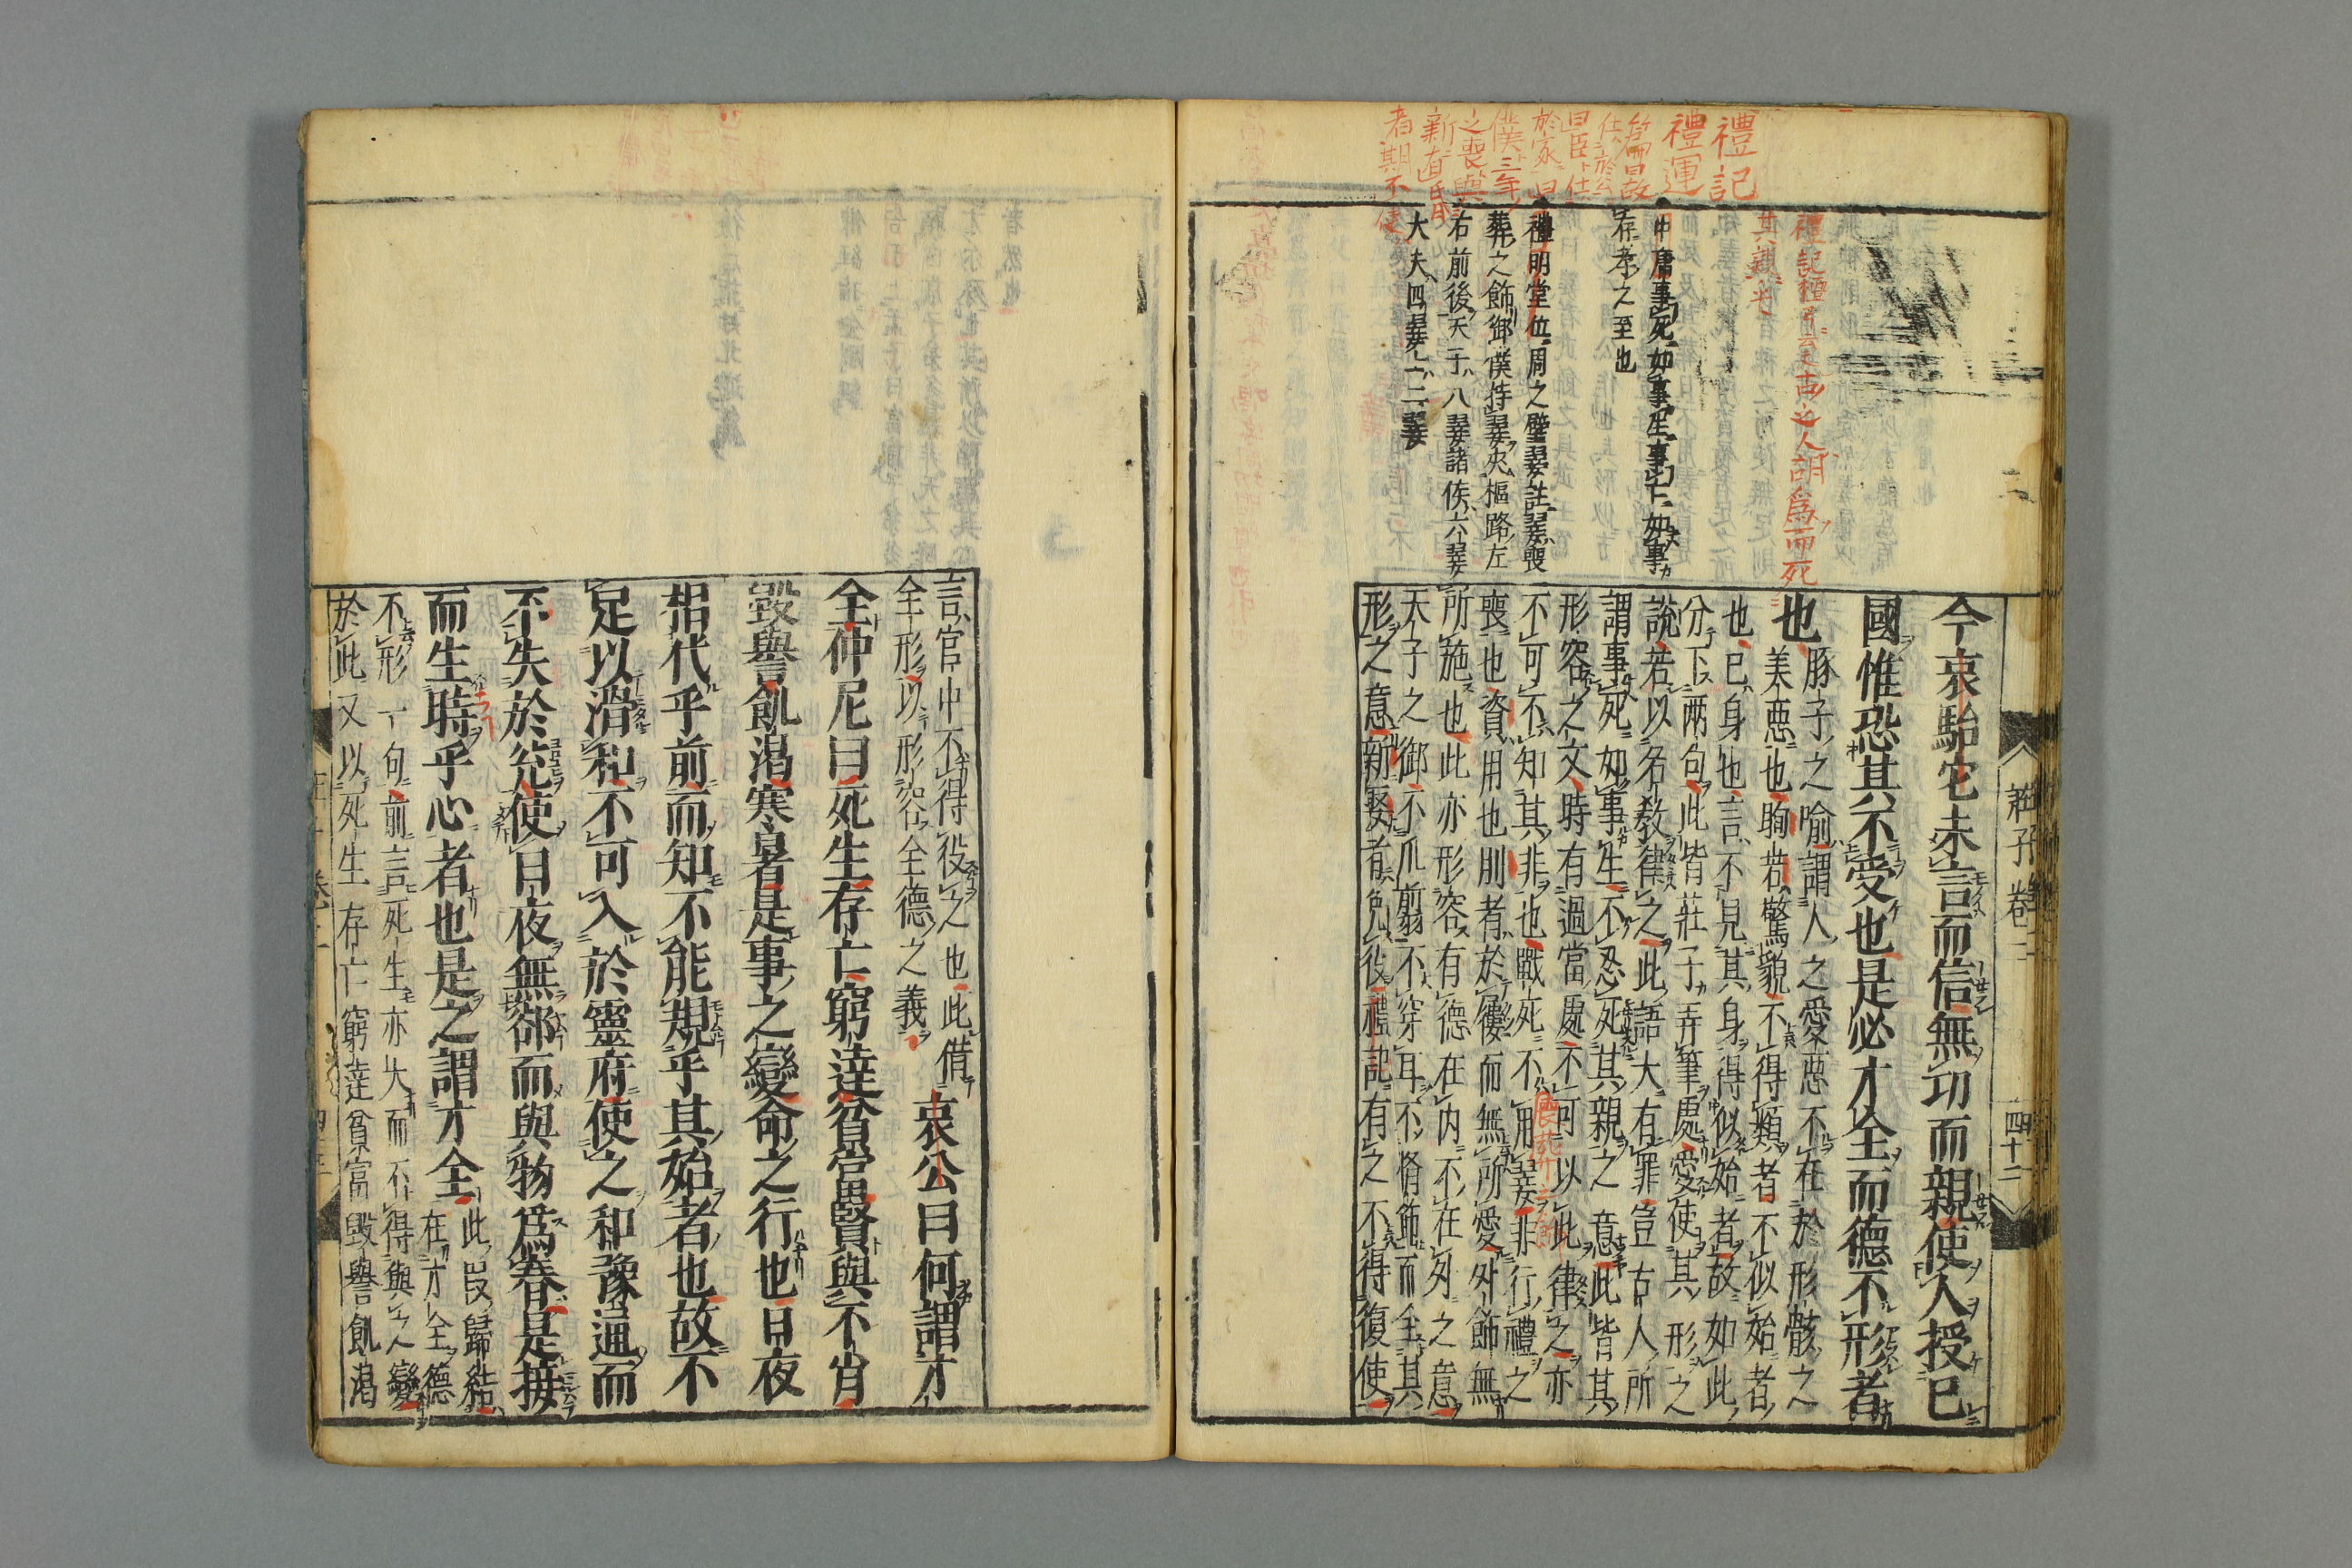 禮記
禮運
篇曰故
仕於公
曰臣仕
於家曰
僕三年
之喪與
新有昏
者期不使
禮記檀弓云之古之人胡爲而死
其親乎
中庸事死如事生事亡如事
存孝之至也
禮明堂位周之璧翣註翣喪
葬之飾御僕持翣夾柩路左
右前後天子八翣諸侯六翣
大夫四翣士二翣
莊子卷二
四十二
今哀駘它未言而信無功而親使人授己
國惟恐其不受也是必才全而德不形者
也
豚子之喻謂人之愛惡不在於形骸之
美惡也眴若驚貌不得類者不似始者
也已身也言不見其身得似始者故如此
分下兩句此皆莊子弄筆處愛使其形之
說若以名教律之此語大有罪豈古人所
謂事死如事生不忍死其親之意此皆其
形容之文時有過當處不可以此律之亦
不可不知其非也戰死不用翣非行禮之
喪也資用也刖者於屨而無所愛外飾無
所施也此亦形容有德在内不在外之意
天子之御不爪翦不穿耳不脩飾而全其
形之意新娶者免役禮記有之不得復使
言官中不得役之也此借
全形以形容全德之義
哀公曰何謂才
全仲尼曰死生存亡窮達貧富賢與不肖
毀譽飢渴寒暑是事之變命之行也日夜
相代乎前而知不能規乎其始者也故不
足以滑和不可入於靈府使之和豫通而
不失於兌使日夜無郤而與物爲春是接
而生時乎心者也是之謂才全
此段歸結
在才全德
不形一句前言死生亦大而不得與之變
於此又以死生存亡窮達貧富毀譽飢渴